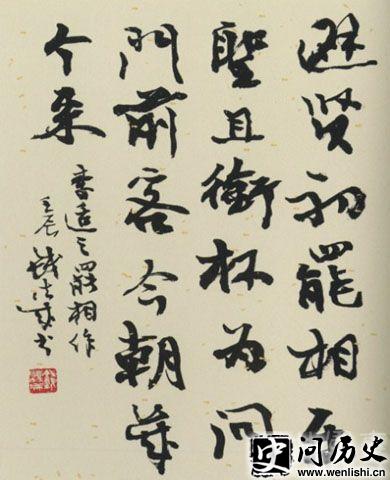 避贤初罷相乐
聖且銜杯为问
門前客今朝幾
个来
李适之罷相作
壬辰 钱法成书
问历史
www.wenlishi.cn